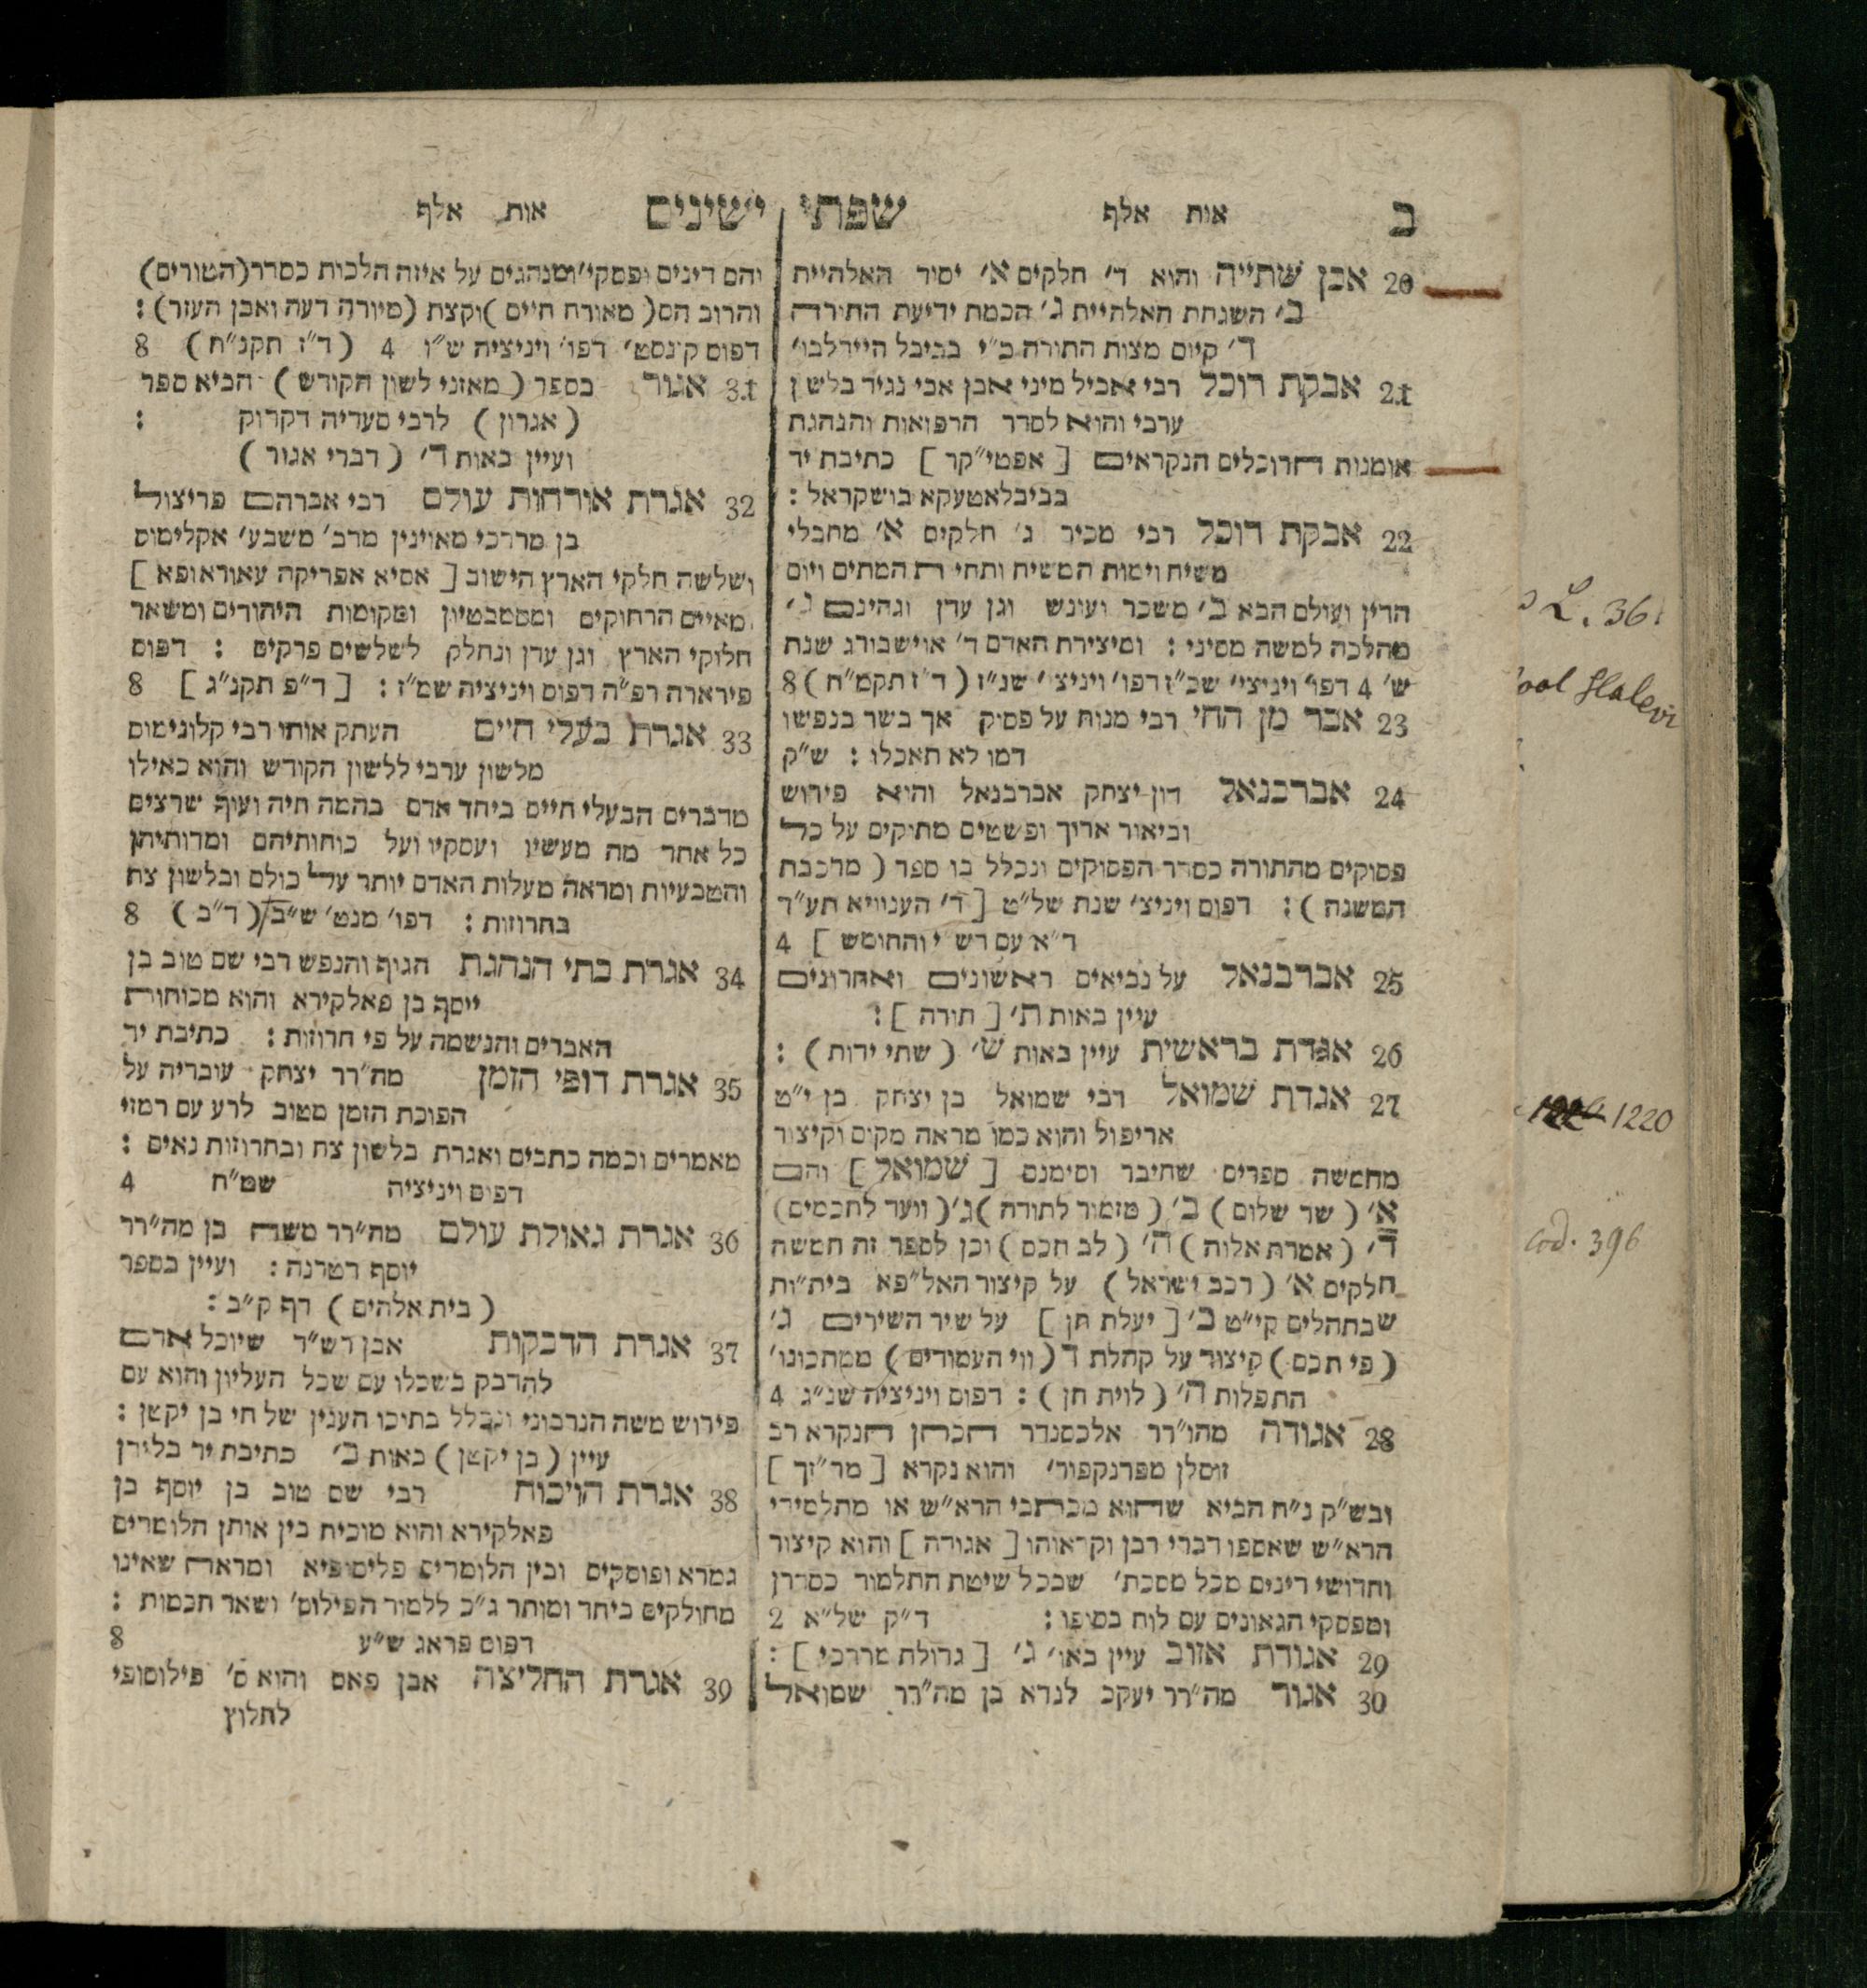 ב
אות אלף
שפתי ישינים
אות אלף
20 אבן שתייה והוא ד׳ חלקים א׳ יסוד האלהיית
ב׳ השגחת האלהיית ג׳ חכמת ידיעת התורה
ד׳ קיום מצות התורה כ״י בביבל היידלבו׳
21 אבקת רוכל רבי אביל מיני אבן אבי נגיד בלשון
ערבי והוא לסדר הרפואות והנהגת
אומנות הרוכלים הנקראים [ אפטי״קר ] כתיבת יד
בביבלאטעקא בושקראל :
22 אבקת רוכל רבי מכיר ג׳ חלקים א׳ מחבלי
משיח וימות המשיח ותחיית המתים ויום
הדין ועולם הבא ב׳ משכר ועונש וגן עדן וגהינם ג׳
מהלכה למשה מסיני : ומיצירת האדם ד׳ אוישבורג שנת
ש׳ 4 דפו׳ ויניצי׳ שכ״ז דפו׳ ויניצי׳ שנ״ז ( ד״ז תקמ״ח ) 8
23 אבר מן החי רבי מנוח על פסוק אך בשר בנפשו
דמו לא תאכלו : ש״ק
24 אברבנאל דון יצחק אברבנאל והוא פירוש
וביאור ארוך ופשטים מתוקים על כל
פסוקים מהתורה כסדר הפסוקים ונכלל בו ספר ( מרכבת
המשנה ) : דפוס ויניצ׳ שנת של״ט [ ד׳ הענוויא תע״ד
ד״א עם רש״י והחומש ] 4
25 אברבנאל על נביאים ראשונים ואחרונים
עיין באות ת׳ [ תורה ] :
26 אגדת בראשית עיין באות ש׳ ( שתי ידות ) :
27 אגדת שמואל רבי שמואל בן יצחק בן י״ט
אריפול והוא כמו מראה מקום וקיצור
מחמשה ספרים שחיבר וסימנם [ שמואל ] והם
א׳ ( שר שלום ) ב׳ ( מזמור לתודה ) ג׳ ( וועד לחכמים )
ד׳ ( אמרת אלוה ) ה׳ ( לב חכם ) וכן לספר זה חמשה
חלקים א׳ ( רכב ישראל ) על קיצור האל״פא בית״ות
שבתהלים קי״ט ב׳ [ יעלת חן ] על שיר השירים ג׳
( פי חכם ) קיצור על קהלת ד ( ווי העמודים ) ממתכונו׳
התפלות ה׳ ( לוית חן ) : דפוס ויניציה שנ״ג 4
28 אגודה מהו״רר אלכסנדר הכהן הנקרא רב
זוסלן מפרנקפור׳ והוא נקרא [ מר״זך ]
ובש״ק נ״ח הביא שהוא מכתבי הרא״ש או מתלמידי
הרא״ש שאספו דברי רבן וקראוהו [ אגודה ] והוא קיצור
וחדושי דינים מכל מסכת׳ שבכל שיטת התלמוד כסדרן
ומפסקי הגאונים עם לוח בסופו : ד״ק של״א 2
29 אגודת אזוב עיין באו׳ ג׳ [ גדולת מרדכי ] :
30 אגור מה״רר יעקב לנדא בן מה״רר שמואל
והם דינים ופסקי׳ ומנהגים על איזה הלכות כסדר ( הטורים )
והרוב הם ( מאורח חיים ) וקצת ( מיורה דעה ואבן העזר ) :
דפוס קונסט׳ דפו׳ ויניציה ש״ו 4 ( ד״ז תקנ״ח ) 8
31 אגור בספר ( מאזני לשון הקודש ) הביא ספר
( אגרון ) לרבי סעדיה דקדוק :
ועיין באות ד׳ ( דברי אגור )
32 אגרת אורחות עולם רבי אברהם פריצול
בן מרדכי מאוינין מדב׳ משבע׳ אקלימוס
ושלשה חלקי הארץ הישוב [ אסיא אפריקה עאוראופא ]
מאיים הרחוקים ומסמבטיון ומקומות היהודים ומשאר
חלוקי הארץ וגן עדן ונחלק לשלשים פרקים : דפוס
פירארה רפ״ה דפוס ויניציה שמ״ז : [ ד״פ תקנ״ג ] 8
33 אגרת בעלי חיים העתק אותו רבי קלונימוס
מלשון ערבי ללשון הקודש והוא כאילו
מדברים הבעלי חיים ביחד אדם בהמה חיה ועוף שרצים
כל אחד מה מעשיו ועסקיו ועל כוחותיהם ומדותיהן
והטבעיות ומראה מעלות האדם יותר על כולם ובלשון צח
בחרוזות : דפו׳ מנט׳ ש״ב ( ד״ב ) 8
34 אגרת בתי הנהגת הגוף והנפש רבי שם טוב בן
יוסף בן פאלקירא והוא מכוחות
האברים והנשמה על פי חרוזות : כתיבת יד
35 אגרת דופי הזמן מה״רר יצחק עובדיה על
הפוכת הזמן מטוב לרע עם רמזי
מאמרים וכמה כתבים ואגרת בלשון צח ובחרוזות נאים :
דפוס ויניציה שמ״ח 4
36 אגרת גאולת עולם מה״רר משה בן מה״רר
יוסף דטרנה : ועיין בספר
( בית אלהים ) דף ק״ב :
37 אגרת הדבקות אבן רש״ד שיוכל אדם
להדבק בשכלו עם שכל העליון והוא עם
פירוש משה הנרבוני ונכלל בתוכו הענין של חי בן יקטן :
עיין ( בן יקטן ) באות ב׳ כתיבת יד בלידן
38 אגרת הויכוח רבי שם טוב בן יוסף בן
פאלקירא והוא מוכיח בין אותן הלומדים
גמרא ופוסקים ובין הלומדים פליסופיא ומראה שאינו
מחולקים ביחד ומותר ג״כ ללמוד הפילוס׳ ושאר חכמות :
דפוס פראג ש״ע 8
39 אגרת החליצה אבן פאס והוא ס׳ פילוסופי
לחלוץ
L. 36.
Halevi
1220
cod. 396